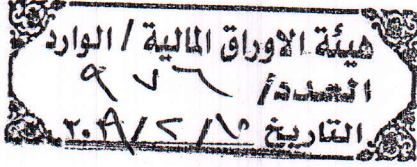 هيئة الاوراق المالية / الوارد
العدد/ ٩٧٦
التاريخ /٢/ ٢٠١٩